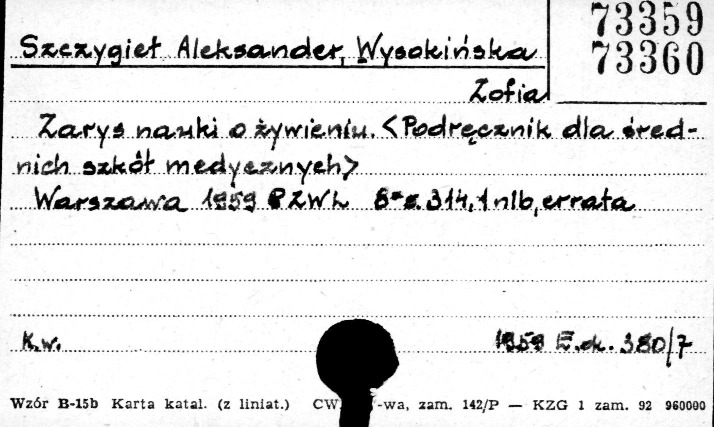 73359
73360
Szczygieł Aleksander, Wysokińska
Zofia
Zarys nauki o żywieniu. <Podręcznik dla śred-
nich szkół medycznych>
Warszawa 1959 PZWL 8° s. 314, 1 nlb, errata
K.w. 1959 E.dk. 380/7
Wzór B-15b Karta katal. (z liniat.) CW -wa, zam. 142/P — KZG 1 zam. 92 960000